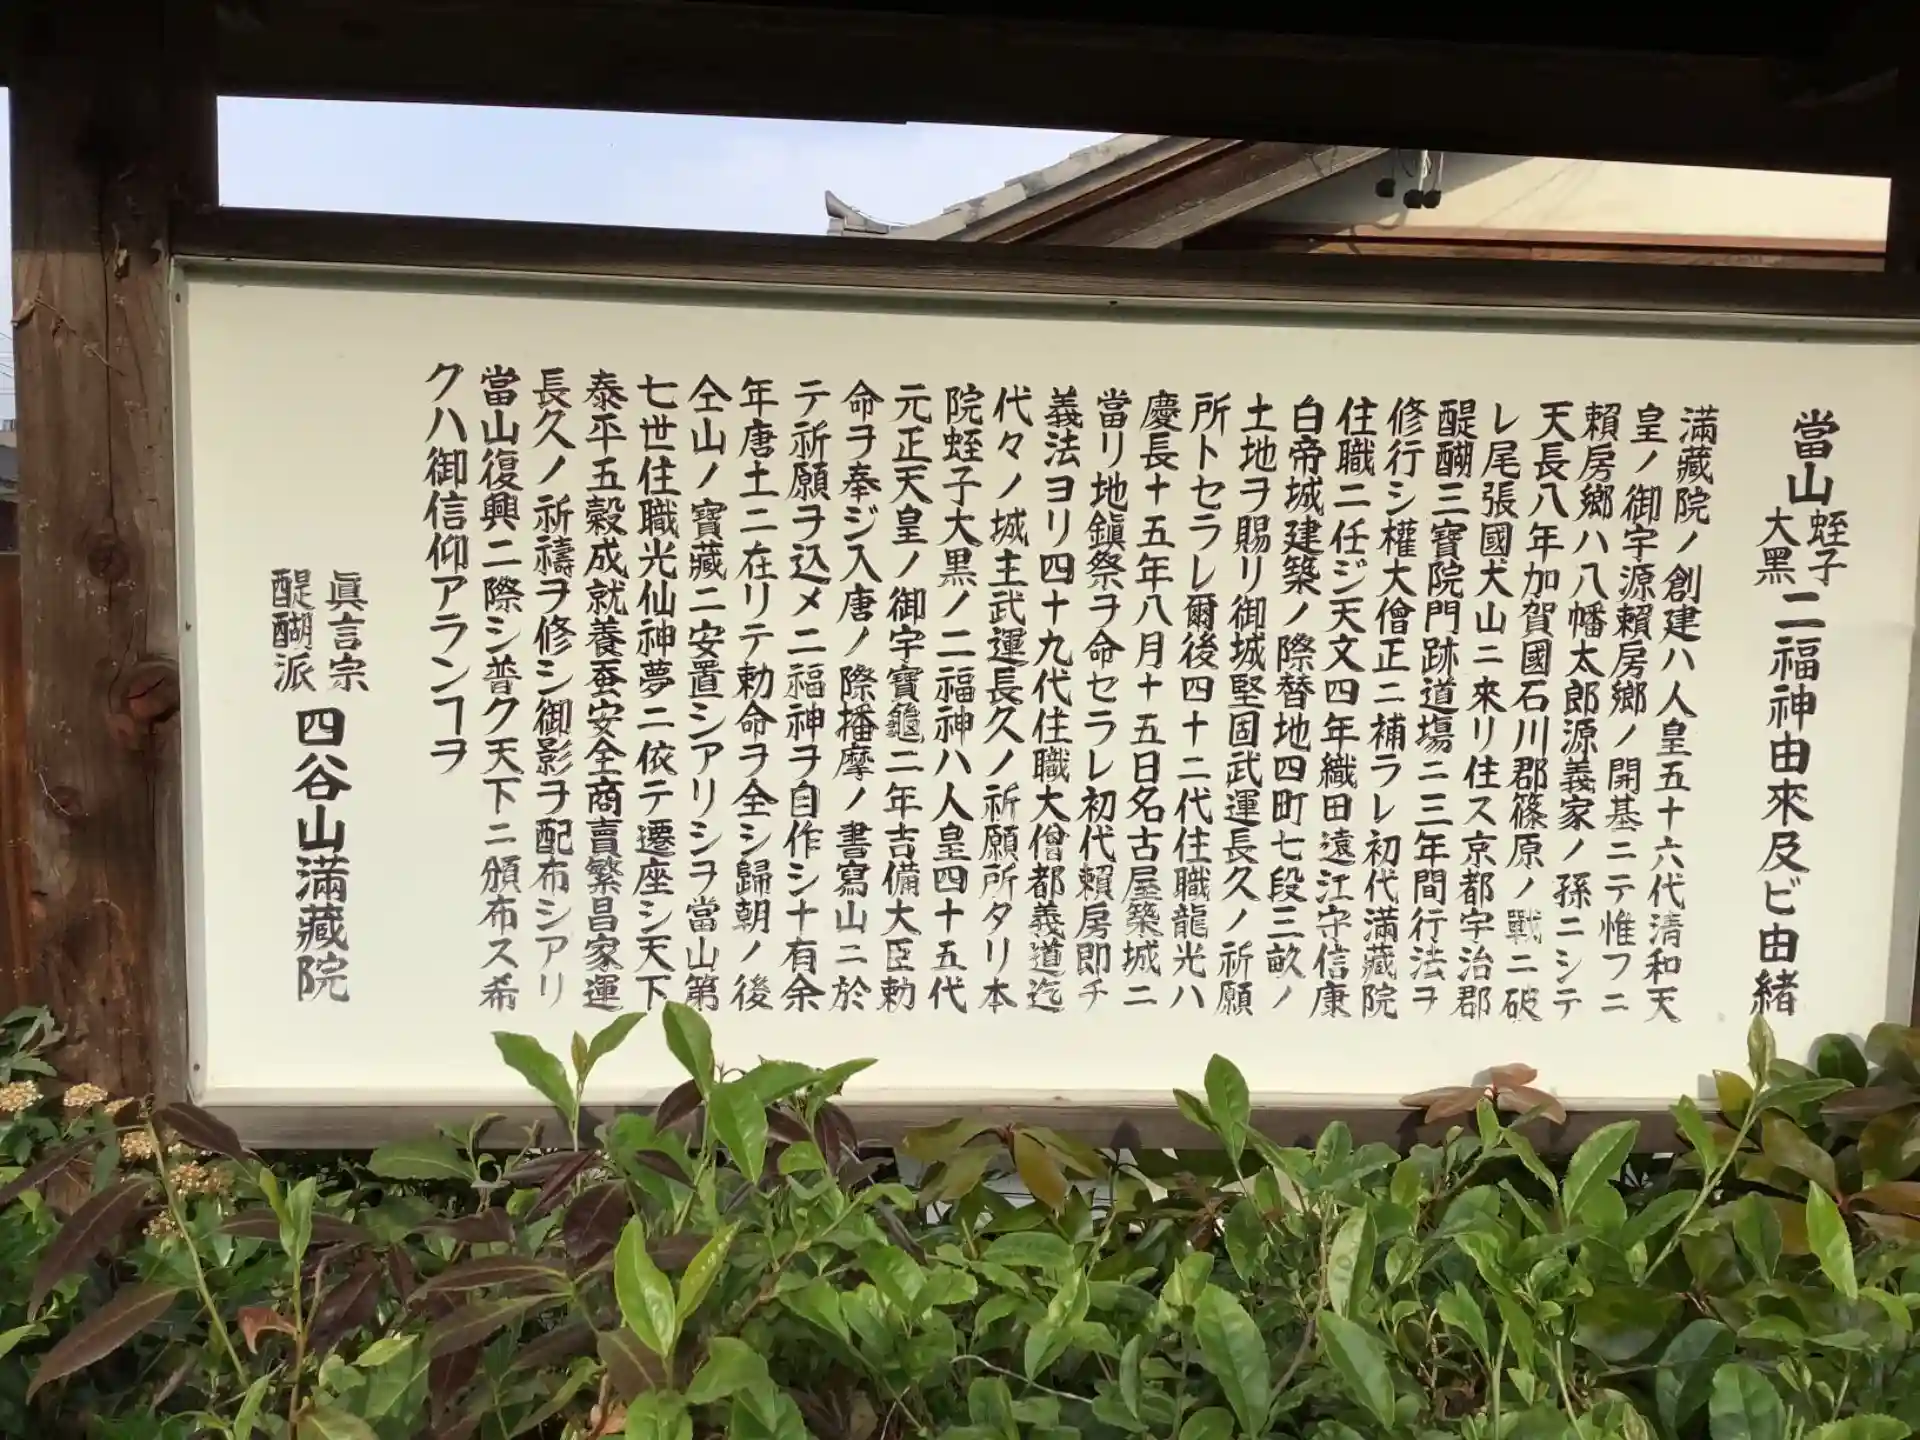 當山蛭子大黒二福神由來及ビ由緒
満藏院ノ創建ハ人皇五十六代清和天
皇ノ御宇源賴房郷ノ開基ニテ惟フニ
賴房郷ハ八幡太郎源義家ノ孫ニシテ
天長八年加賀國石川郡篠原ノ戰ニ破
レ尾張國犬山ニ來リ住ス京都宇治郡
醍醐三寶院門跡道場ニ三年間行法ヲ
修行シ權大僧正ニ補ラレ初代満藏院
住職ニ任ジ天文四年織田遠江守信康
白帝城建築ノ際替地四町七段三畝ノ
土地ヲ賜リ御城堅固武運長久ノ祈願
所トセラレ爾後四十二代住職龍光ハ
慶長十五年八月十五日名古屋築城ニ
當リ地鎭祭ヲ命セラレ初代賴房即チ
義法ヨリ四十九代住職大僧都義道迄
代々ノ城主武運長久ノ祈願所タリ本
院蛭子大黒ノ二福神ハ人皇四十五代
元正天皇ノ御宇寶龜二年吉備大臣勅
命ヲ奉ジ入唐ノ際播摩ノ書寫山ニ於
テ祈願ヲ込メ二福神ヲ自作シ十有余
年唐土ニ在リテ勅命ヲ全シ歸朝ノ後
仝山ノ寶藏ニ安置シアリシヲ當山第
七世住職光仙神夢ニ依テ遷座シ天下
泰平五穀成就養蚕安全商賣繁昌家運
長久ノ祈禱ヲ修シ御影ヲ配布シアリ
當山復興ニ際シ普ク天下ニ頒布ス希
クハ御信仰アランヿヲ
眞言宗醍醐派 四谷山満藏院